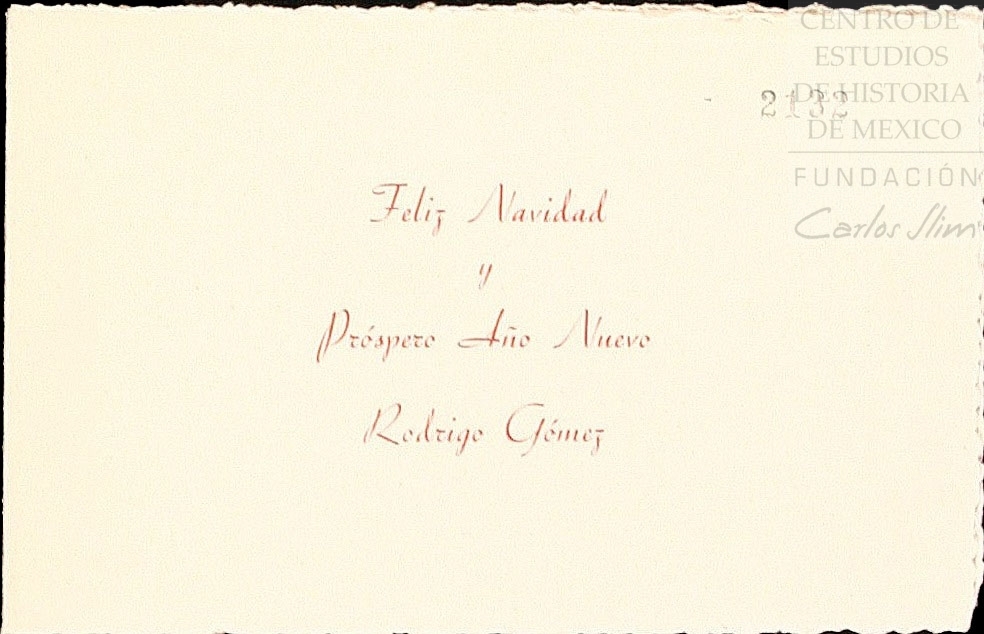 CENTRO DE
ESTUDIOS
DE HISTORIA
DE MEXICO
FUNDACIÓN
Carlos Slim
2132
Feliz Navidad
y
Próspero Año Nuevo
Rodrigo Gómez